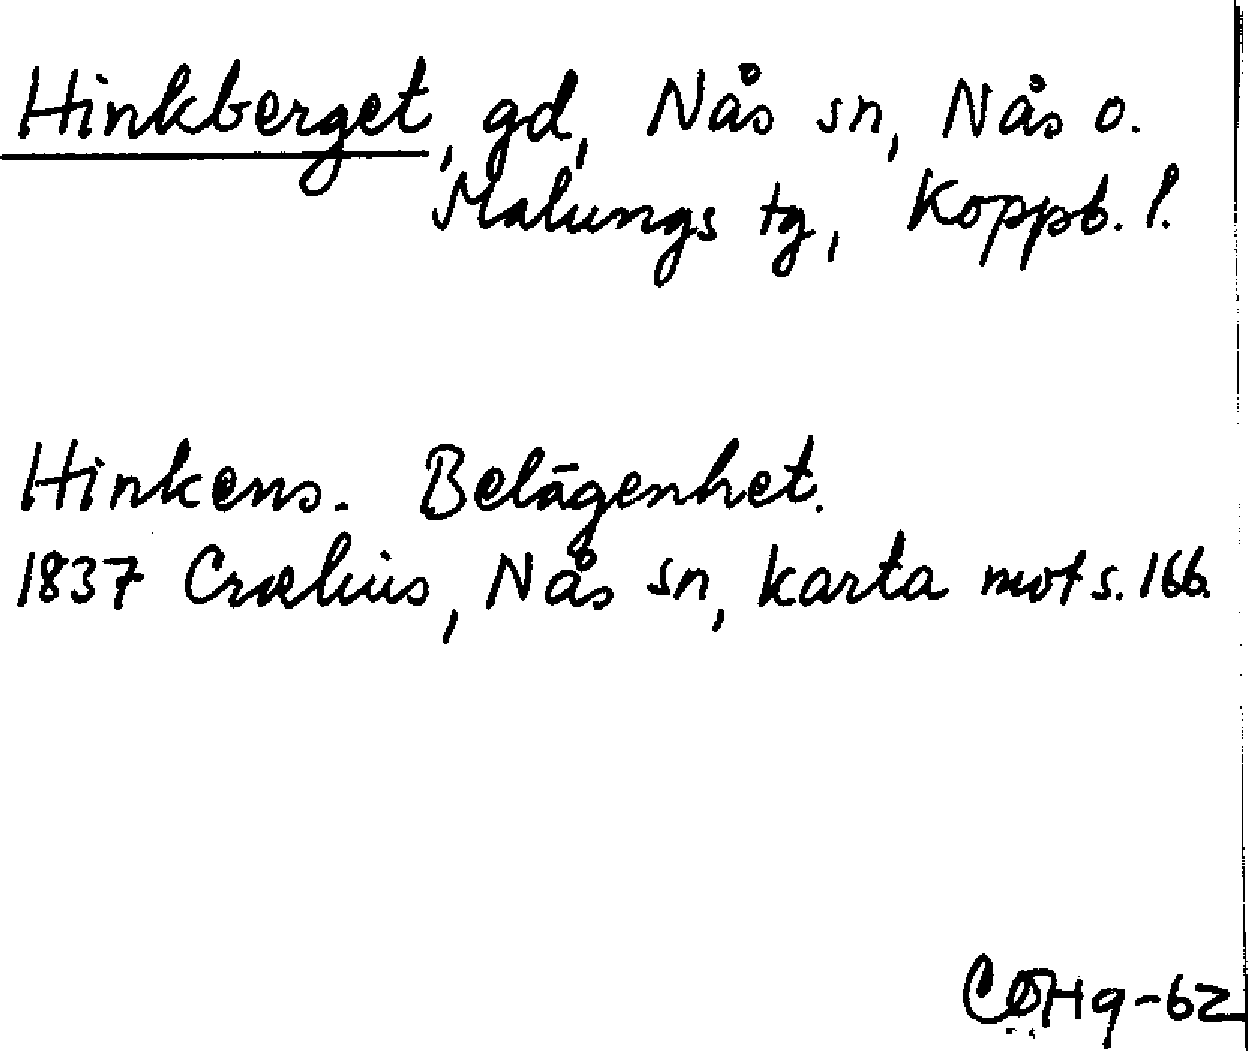 Hinkberget, gd, Nås sn, Nås o.
Malungs tg, Koppb. l.
Hinkens. Belägenhet.
1837 Crælius, Nås sn, karta mot s. 166.
-62